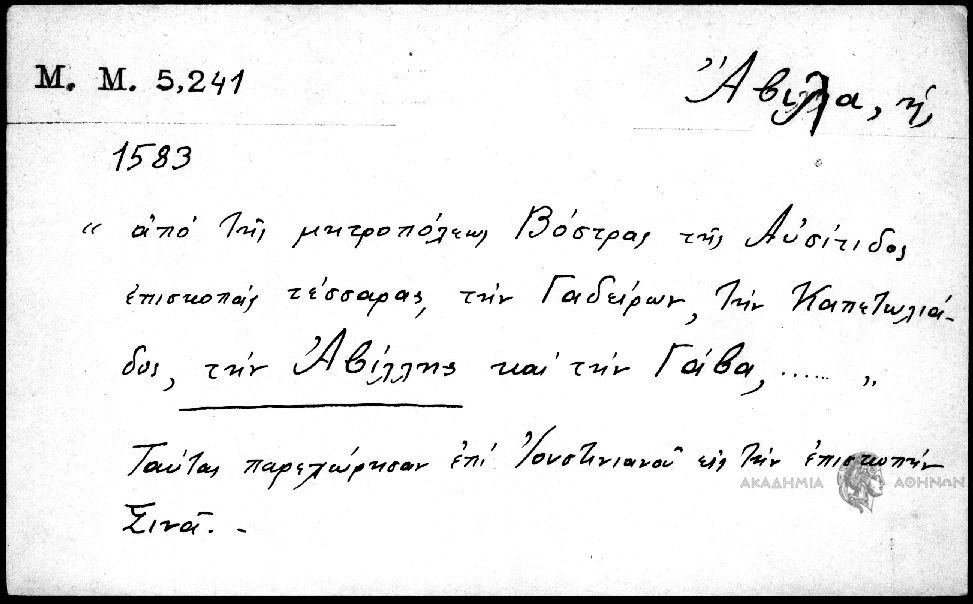 Μ. Μ. 5,241
Ἄβιλα, ἡ
1583
“ ἀπό τῆς μητροπόλεως Βόστρας τῆς Αὐσίτιδος
ἐπισκοπάς τέσσαρας, τήν Γαδείρων, τήν Καπετωλιά-
δος, τήν Ἀβίλλης καί τήν Γάβα, ...... „
Ταύτας παρεχώρησαν ἐπί Ἰουστινιανοῦ εἰς τήν ἐπισκοπήν
Σινᾶ. -
ΑΚΑΔΗΜΙΑ ΑΘΗΝΩΝ